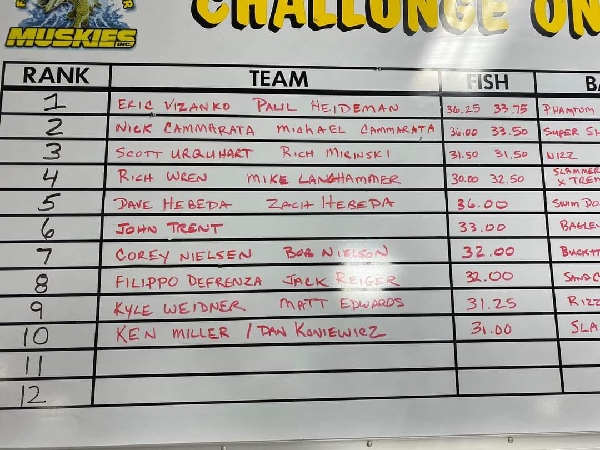 CHALLUNGE ON
MUSKIES INC
RANK TEAM FISH BA
1 ERIC VIZANKO PAUL HEIDEMAN 36.25 33.75 PHANTOM
2 NICK CAMMARATA MICHAEL CAMMARATA 36.00 33.50 SUPER SH
3 SCOTT URQUHART RICH MIRINSKI 31.50 31.50 WIZZ
4 RICH WREN MIKE LANGHAMMER 30.00 32.50 SLAMMER
X TREM
5 DAVE HEBEDA ZACH HEBEDA 36.00 SWIM DO
6 JOHN TRENT 33.00 BAGLEY
7 COREY NIELSEN BOB NIELSON 32.00 BUCKT
8 FILIPPO DEFRENZA JACK REIGER 32.00 SAND C
9 KYLE WEIDNER MATT EDWARDS 31.25 RIZZ
10 KEN MILLER / DAN KONIEWICZ 31.00 SLA
11
12